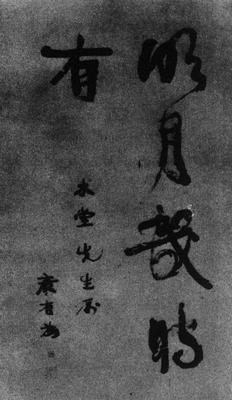 明月幾時
有
木堂先生属
康有為